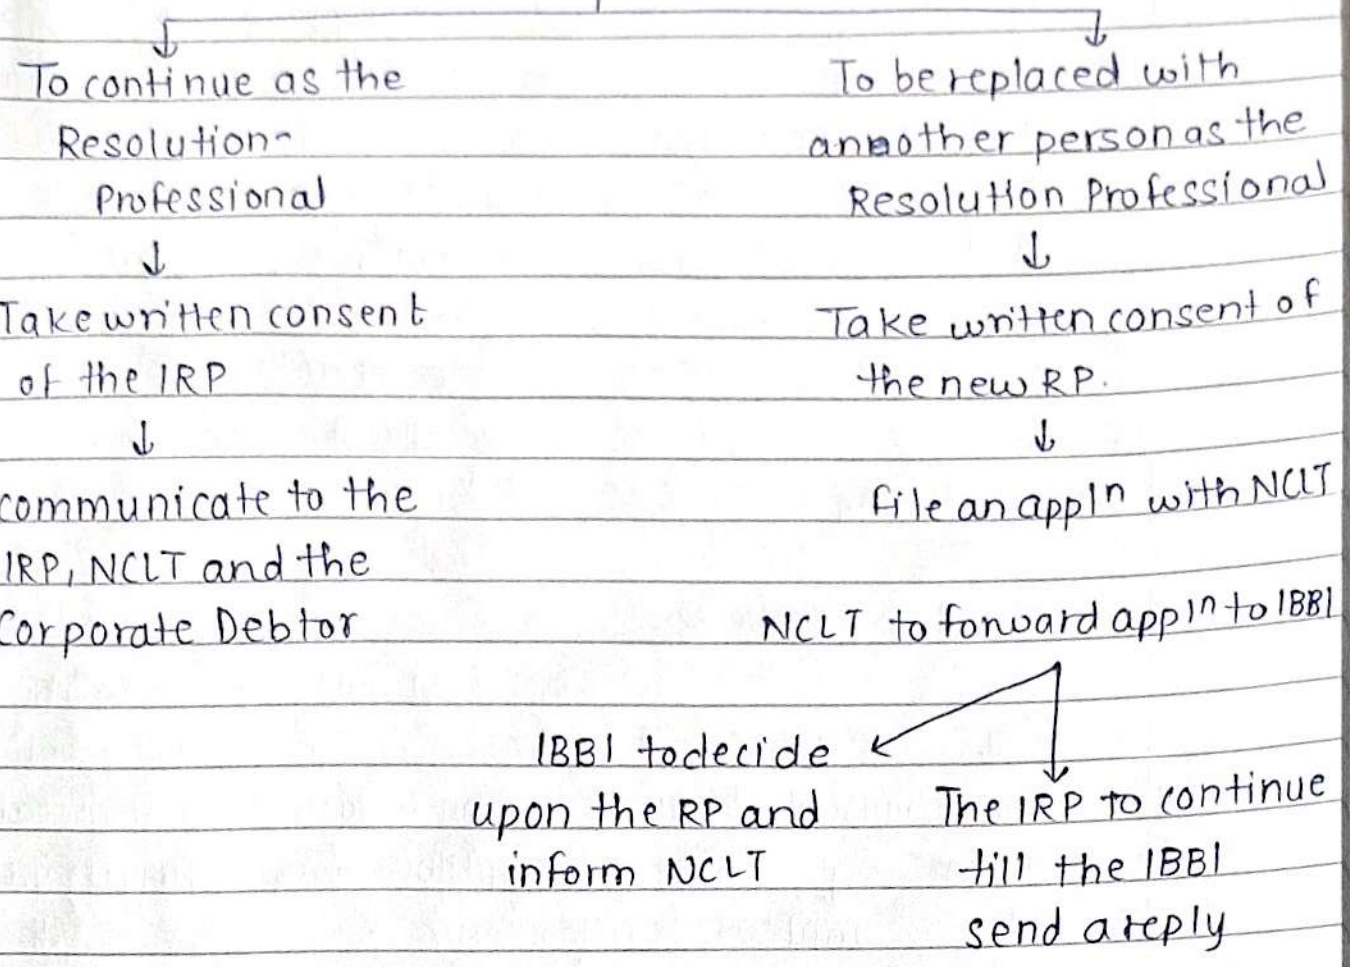 To continue as the
Resolution-
Professional
Take written consent
of the IRP
communicate to the
IRP, NCLT and the
Corporate Debtor
To be replaced with
another person as the
Resolution Professional
Take written consent of
the new RP.
file an appln with NCLT
NCLT to forward appln to IBBI
IBBI to decide
upon the RP and
inform NCLT
The IRP to continue
till the IBBI
send a reply